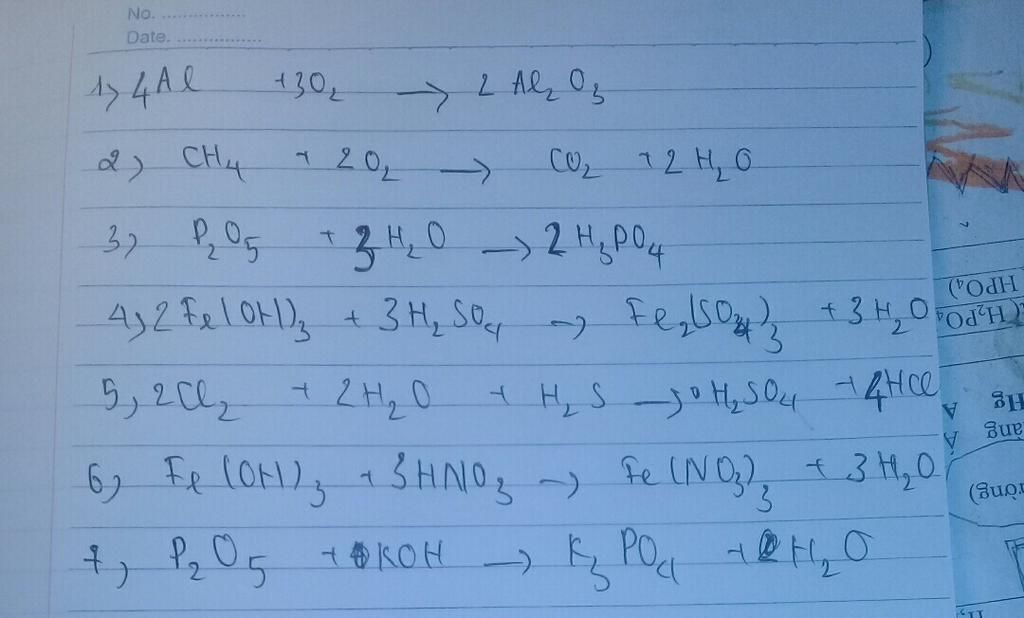 No. ................
Date. ................
1) 4Al + 3O₂ → 2 Al₂O₃
2) CH₄ + 2O₂ → CO₂ + 2H₂O
3) P₂O₅ + 3H₂O → 2H₃PO₄
4) 2Fe(OH)₃ + 3H₂SO₄ → Fe₂(SO₄)₃ + 3H₂O
5) 2Cl₂ + 2H₂O + H₂S → H₂SO₄ + 4HCl
6) Fe(OH)₃ + 3HNO₃ → Fe(NO₃)₃ + 3H₂O
7) P₂O₅ + KOH → K₃PO₄ + H₂O
HPO₄)
H₂PO₄
Hg A